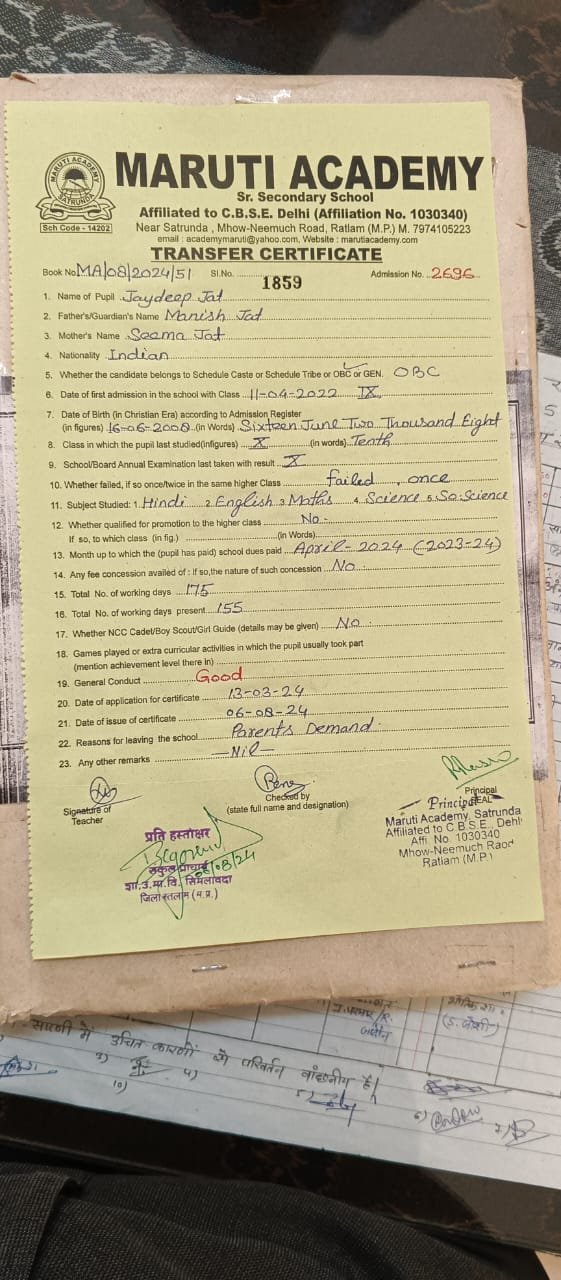 MARUTI ACADEMY
SATRUNDA
Sch Code - 14202
MARUTI ACADEMY
Sr. Secondary School
Affiliated to C.B.S.E. Delhi (Affiliation No. 1030340)
Near Satrunda , Mhow-Neemuch Road, Ratlam (M.P.) M. 7974105223
email : academymaruti@yahoo.com, Website : marutiacademy.com
TRANSFER CERTIFICATE
Book No MA/08/2024/51 Sl.No. 1859 Admission No. 2696
1. Name of Pupil Jaydeep Jat
2. Father's/Guardian's Name Manish Jat
3. Mother's Name Seema Jat
4. Nationality Indian
5. Whether the candidate belongs to Schedule Caste or Schedule Tribe or OBC or GEN. OBC
6. Date of first admission in the school with Class 11-04-2022 IX
7. Date of Birth (in Christian Era) according to Admission Register
(in figures) 16-06-2008 (in Words) Sixteen June Two Thousand Eight
8. Class in which the pupil last studied(infigures) X (in words) Tenth
9. School/Board Annual Examination last taken with result X
10. Whether failed, if so once/twice in the same higher Class failed, once
11. Subject Studied: 1. Hindi 2. English 3. Maths 4. Science 5. So. Science
12. Whether qualified for promotion to the higher class No-
If so, to which class (in fig.) (in Words)
13. Month up to which the (pupil has paid) school dues paid April-2024 (2023-24)
14. Any fee concession availed of : If so,the nature of such concession No
15. Total No. of working days 175
16. Total No. of working days present 155
17. Whether NCC Cadet/Boy Scout/Girl Guide (details may be given) No
18. Games played or extra curricular activities in which the pupil usually took part
(mention achievement level there in)
19. General Conduct Good
20. Date of application for certificate 13-03-24
21. Date of issue of certificate 06-08-24
22. Reasons for leaving the school Parents Demand.
23. Any other remarks —Nil—
Signature of
Teacher
Checked by
(state full name and designation)
Principal
SEAL
Principal
Maruti Academy, Satrunda
Affiliated to C.B.S.E. Delhi
Affi. No. 1030340
Mhow-Neemuch Raod
Ratlam (M.P.)
प्रति हस्ताक्षर
06/08/24
संकुल प्राचार्य
शा.उ.मा.वि. सिमलावदा
जिला रतलाम (म.प्र.)
सारणी में उचित कारणों से परिवर्तन वांछनीय है।